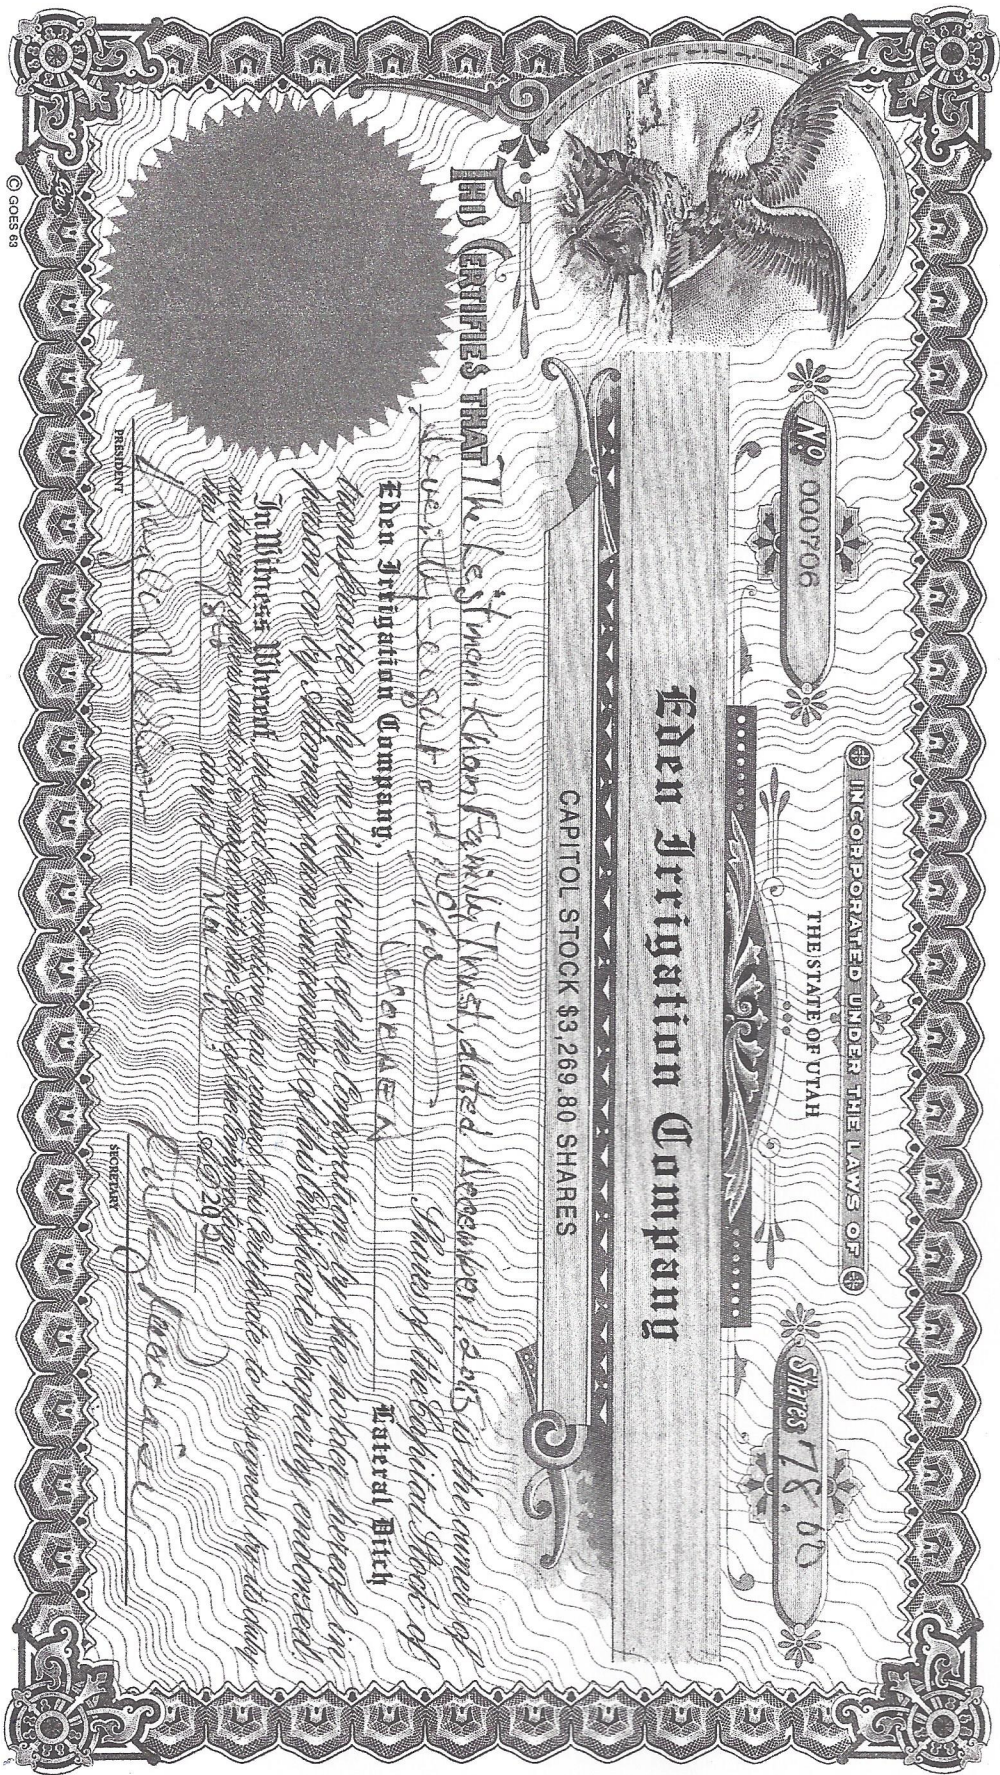 INCORPORATED UNDER THE LAWS OF
THE STATE OF UTAH
No. 000706
Shares 78.00
Eden Irrigation Company
CAPITOL STOCK $3,269.80 SHARES
THIS CERTIFIES THAT The Lestmon Khon Family Trust, dated December 1, 2005 is the owner of
Seventy-eight and no/100 Shares of the Capital Stock of
Eden Irrigation Company, Lateral Ditch
transferable only on the books of the Corporation by the holder hereof in
person or by Attorney upon surrender of this Certificate properly endorsed
In Witness Whereof, the said Corporation has caused this Certificate to be signed by its duly
authorized officers and to be sealed with the Seal of the Corporation
this day of 2021
PRESIDENT
SECRETARY
Goes
© GOES 63